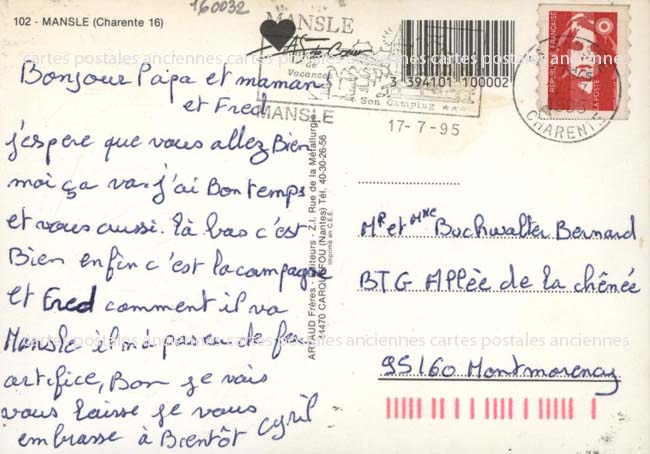 160032
102 - MANSLE (Charente 16)
MANSLE
AS de Cœur
de
Vacances
Son Camping ***
MANSLE
17-7-95
3 394101 100002
RÉPUBLIQUE FRANÇAISE
LA POSTE
CHARENTE
cartes postales anciennes cartes postales anciennes cartes postales anciennes
Bonjour Papa et maman
et Fred
j'espere que vous allez Bien
moi ça va. j'ai Bon temps
et vous aussi. là bas c'est
Bien enfin c'est la campagne
et Fred comment il va
Mansle il m'a pas eu de feu
artifice, Bon je vais
vous laisse je vous
embrasse à Bientôt Cyril
ARTAUD Frères - Éditeurs - Z.I. Rue de la Métallurgie
44470 CARQUEFOU (Nantes) Tél. 40-30-26-56
Imprimé en C.E.E.
Mr et Mme Buchwalter Bernard
BTG Allèe de la chênée
95160 Montmorency
cartes postales anciennes cartes postales anciennes cartes postales anciennes